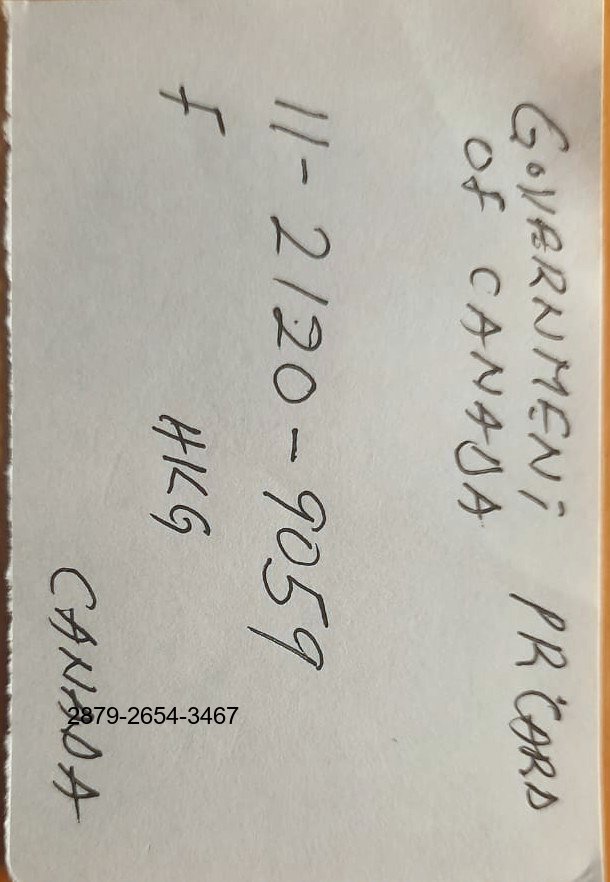 GOVERNMENT PR CARD
OF CANADA
11-2120-9059
F HKG
CANADA
2879-2654-3467